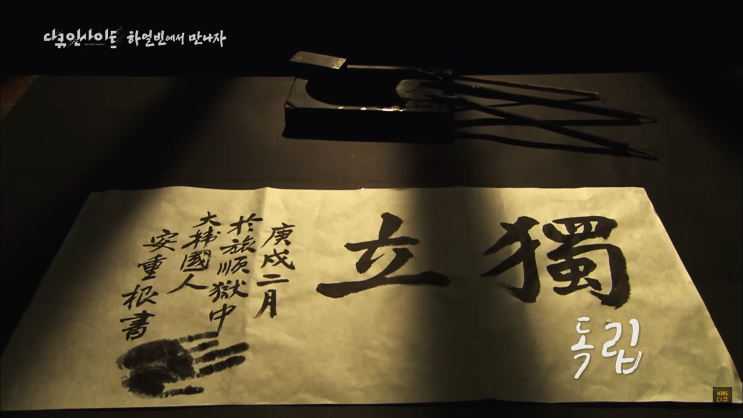 다큐인사이트 하얼빈에서 만나자
獨立
庚戌二月
於旅順獄中
大韓國人
安重根書
독립
KBS
다큐